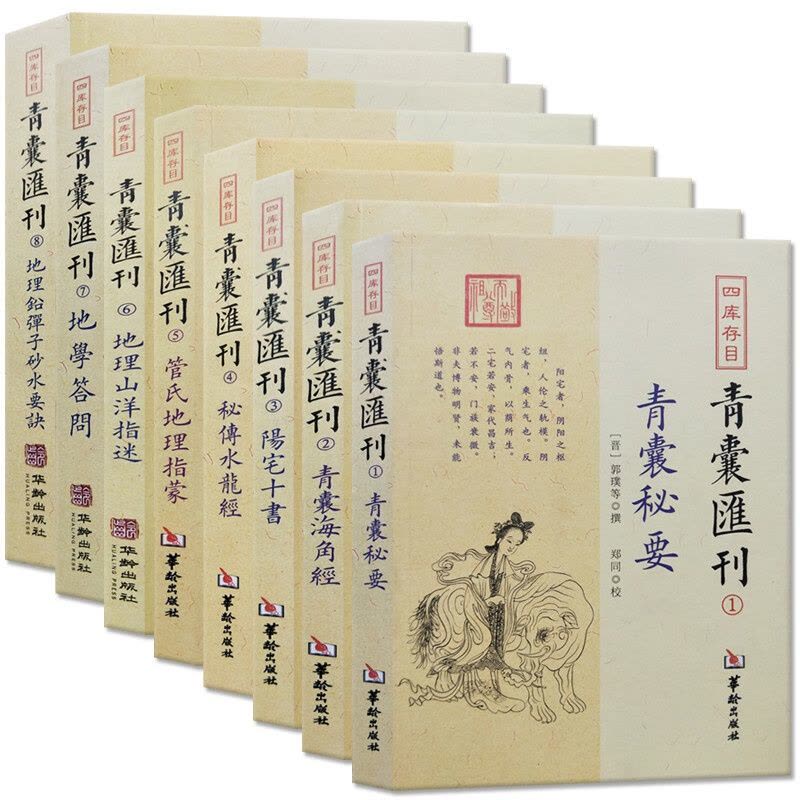 四库存目
青囊匯刊⑧
地理鉛彈子砂水要訣
华龄出版社
HUALING PRESS
四库存目
青囊匯刊⑦
地學答問
华龄出版社
HUALING PRESS
四库存目
青囊匯刊⑥
地理山洋指迷
华龄出版社
HUALING PRESS
四库存目
青囊匯刊⑤
管氏地理指蒙
華龄出版社
四库存目
青囊匯刊④
秘傳水龍經
華龄出版社
四库存目
青囊匯刊③
陽宅十書
華龄出版社
四库存目
青囊匯刊②
青囊海角經
華龄出版社
四库存目
青囊匯刊①
青囊秘要
華龄出版社
四库存目
青囊匯刊①
青囊秘要
[晋]郭璞等○撰 郑同○校
華龄出版社
阳宅者，阴阳之枢
纽，人伦之轨模。阴
宅者，乘生气也。反
气内骨，以荫所生。
二宅若安，家代昌吉；
若不安，门族衰微。
非夫博物明贤，未能
悟斯道也。